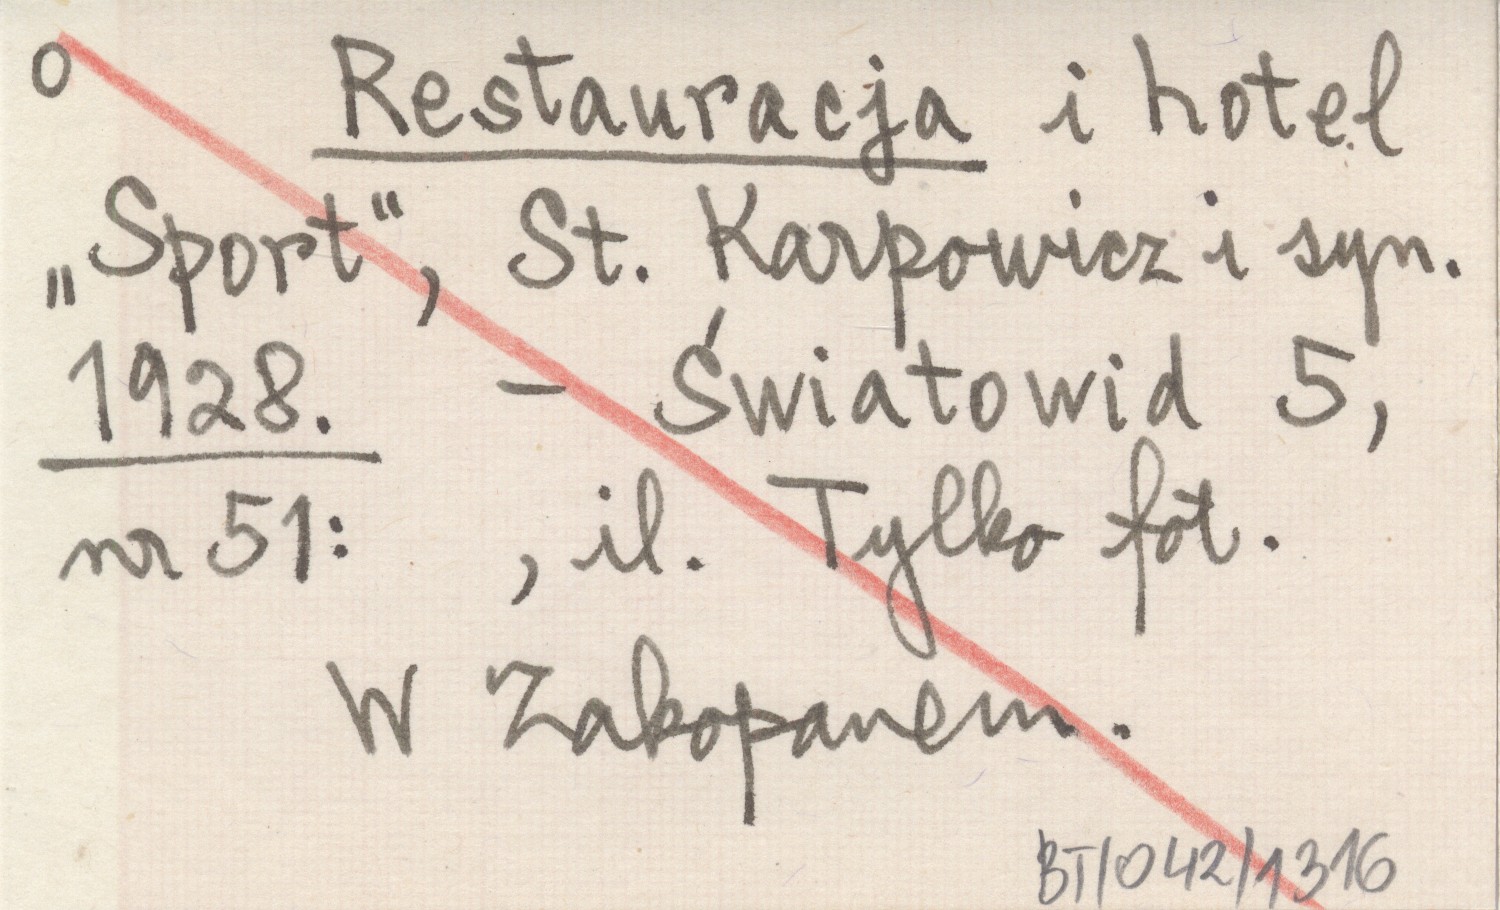 o Restauracja i hotel
„Sport“, St. Karpowicz i syn.
1928. – Światowid 5,
nr 51: , il. Tylko fot.
W Zakopanem.
BT/042/1316